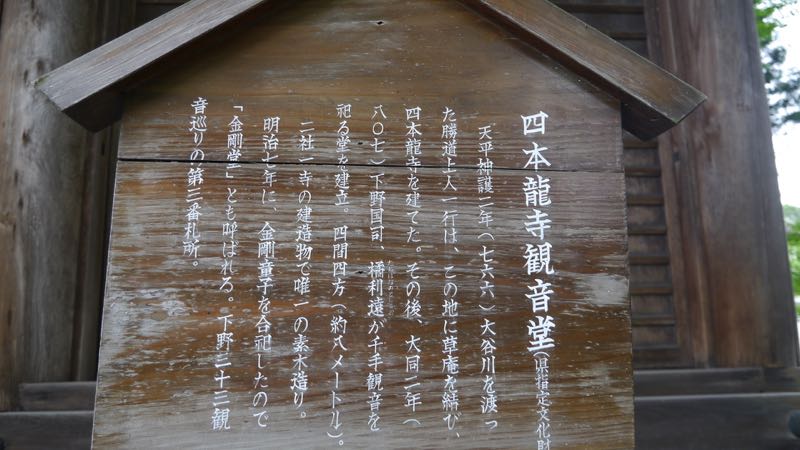 四本龍寺観音堂(県指定文化財
天平神護二年(七六六)大谷川を渡っ
た勝道上人一行は、この地に草庵を結び、
四本龍寺を建てた。その後、大同二年(
八〇七)下野国司、橘利遠が千手観音を
祀る堂を建立。四間四方(約八メートル)。
二社一寺の建造物で唯一の素木造り。
明治七年に、金剛童子を合祀したので
「金剛堂」とも呼ばれる。下野三十三観
音巡りの第三番札所。